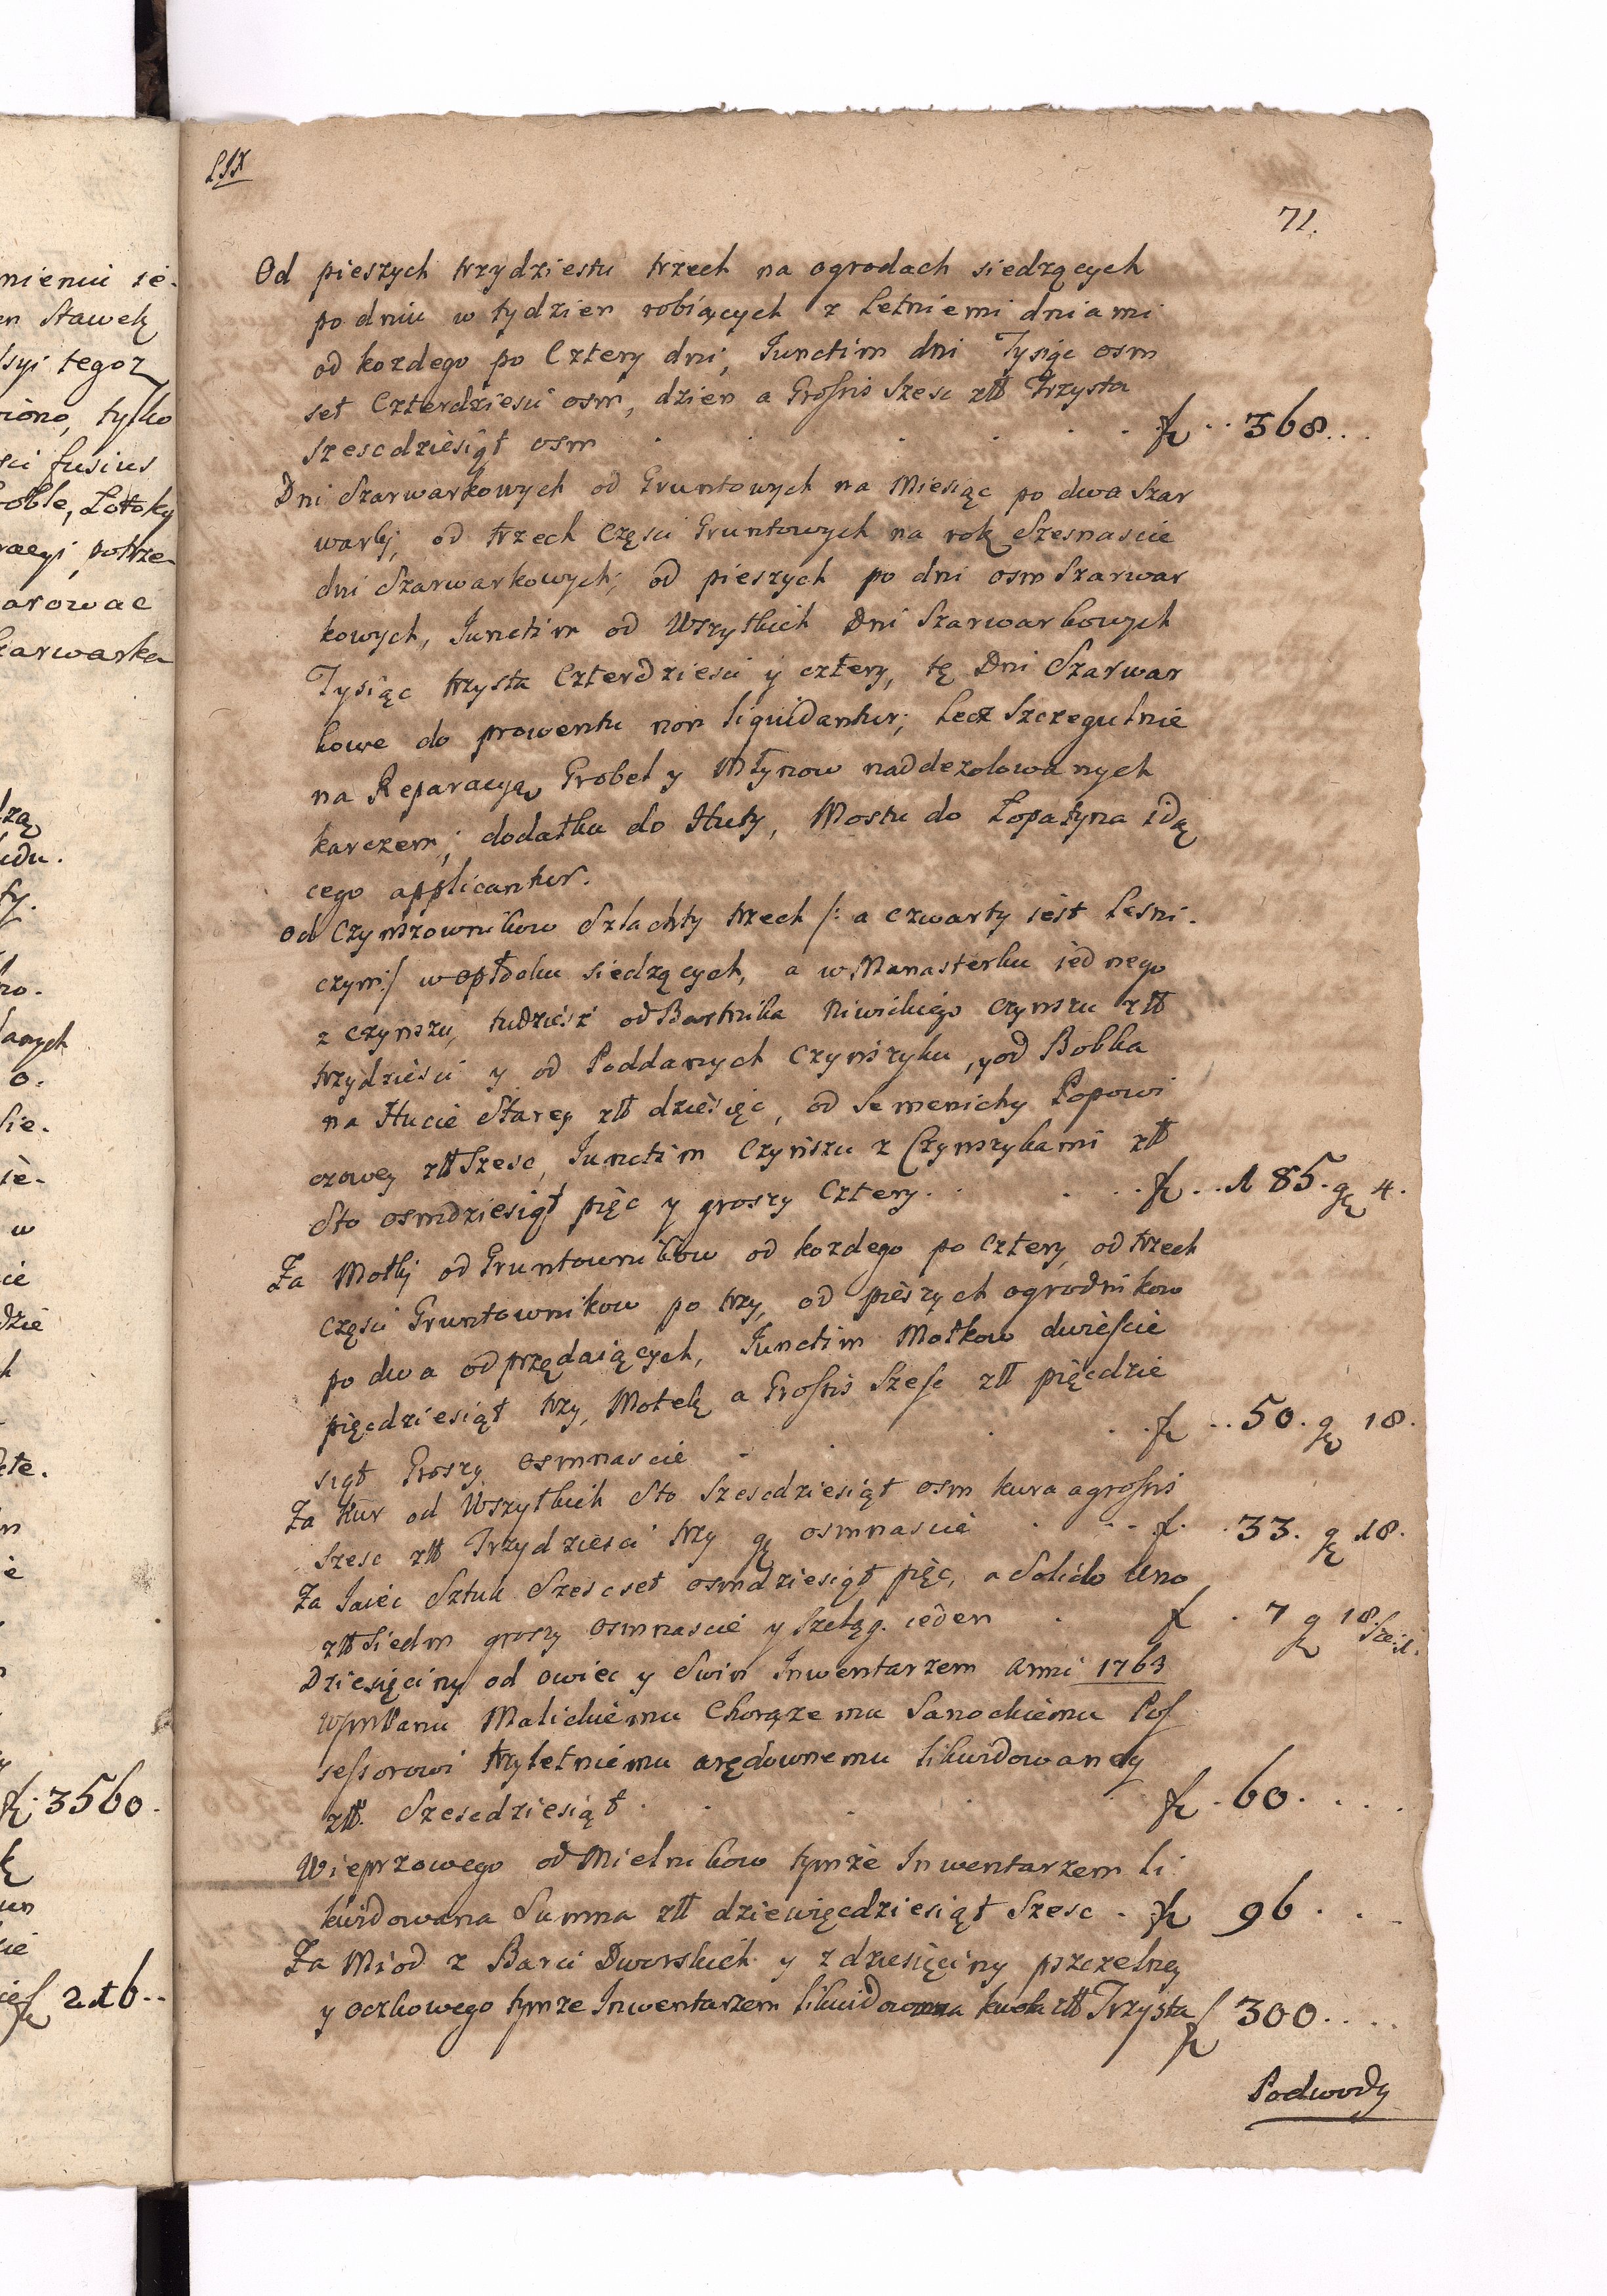 LIX
71.
Od pieszych trzydziestu trzech na ogrodach siedzących
po dniu w tydzien robiących z Letniemi dniami
od kozdego po Cztery dni, Junctim dni Tysiąc osm
set Czterdziesci osm, dzien a Grossis Szesc złł Trzysta
szescdziesiąt osm . . . . . . fl. . . 368. . .
Dni Szarwarkowych od Gruntowych na Miesiąc po dwa Szar
warki, od trzech Częsci Gruntowych na rok Szesnascie
dni Szarwarkowych; od pieszych po dni osm Szarwar
kowych, Junctim od Wszytkich Dni Szarwarkowych
Tysiąc trzysta Czterdziesci y cztery, tę Dni Szarwar
kowe do prowentu non liquidantur; Lecz Szczegulnie
na Reparacyą Grobel y Młynow naddezolowanych
karczem; dodatku do Huty, Mostu do Łopatyna idą
cego applicantur.
Od Czynszownikow Szlachty trzech /: a czwarty iest Lesni-
czym:/ w opłotku siedzących, a w Manasterku iednego
z czynszu, tudziesz od Bartnika Niwickiego czynszu złł
trzydziesci y od Poddanych Czynszyku, y od Bobka
na Hucie Starey złł dziesięc, od Semenichy Popowi
czowey złł Szesc, Junctim Czynszu z Czynszykami złł
Sto osmdziesiąt pięc y groszy Cztery. . . . fl. . . 185. gr 4.
Za Motki od Gruntownikow od kozdego po Cztery, od trzech
częsci Gruntownikow po trzy, od pieszych ogrodnikow
po dwa odprzędaiących, Junctim Motkow dwiescie
pięcdziesiąt trzy, Motek a Grossis Szesc złł pięcdzie
siąt Groszy osmnascie . . . . fl. . . 50. gr 18.
Za Kur od Wszytkich Sto Szescdziesiąt osm kura a grossis
Szesc złł Trzydziesci trzy gr osmnascie . . . fl. . 33. gr 18.
Za Jaiec Sztuk Szescset osmdziesiąt pięc, a Solido Uno
złł Siedm groszy osmnascie y Szeląg. ieden . . fl . 7 gr 18. Sze: 1.
Dziesięciny od owiec y Swin Inwentarzem Anni 1763
WJmPanu Malickiemu Chorązemu Sanockiemu Pos
sessorowi trzyletniemu arędownemu likwidowaney
złł. Szescdziesiąt . . . . . fl . 60. . . .
Wieprzowego od Mielnikow tymze Inwentarzem li
kwidowana Summa złł dziewięcdziesiąt Szesc . fl 96 . . .
Za Miod z Barci Dworskich y z dziesięciny pszczelney
y oczkowego tymze Inwentarzem likwidowana kwota złł Trzysta fl 300. . . .
Podwody